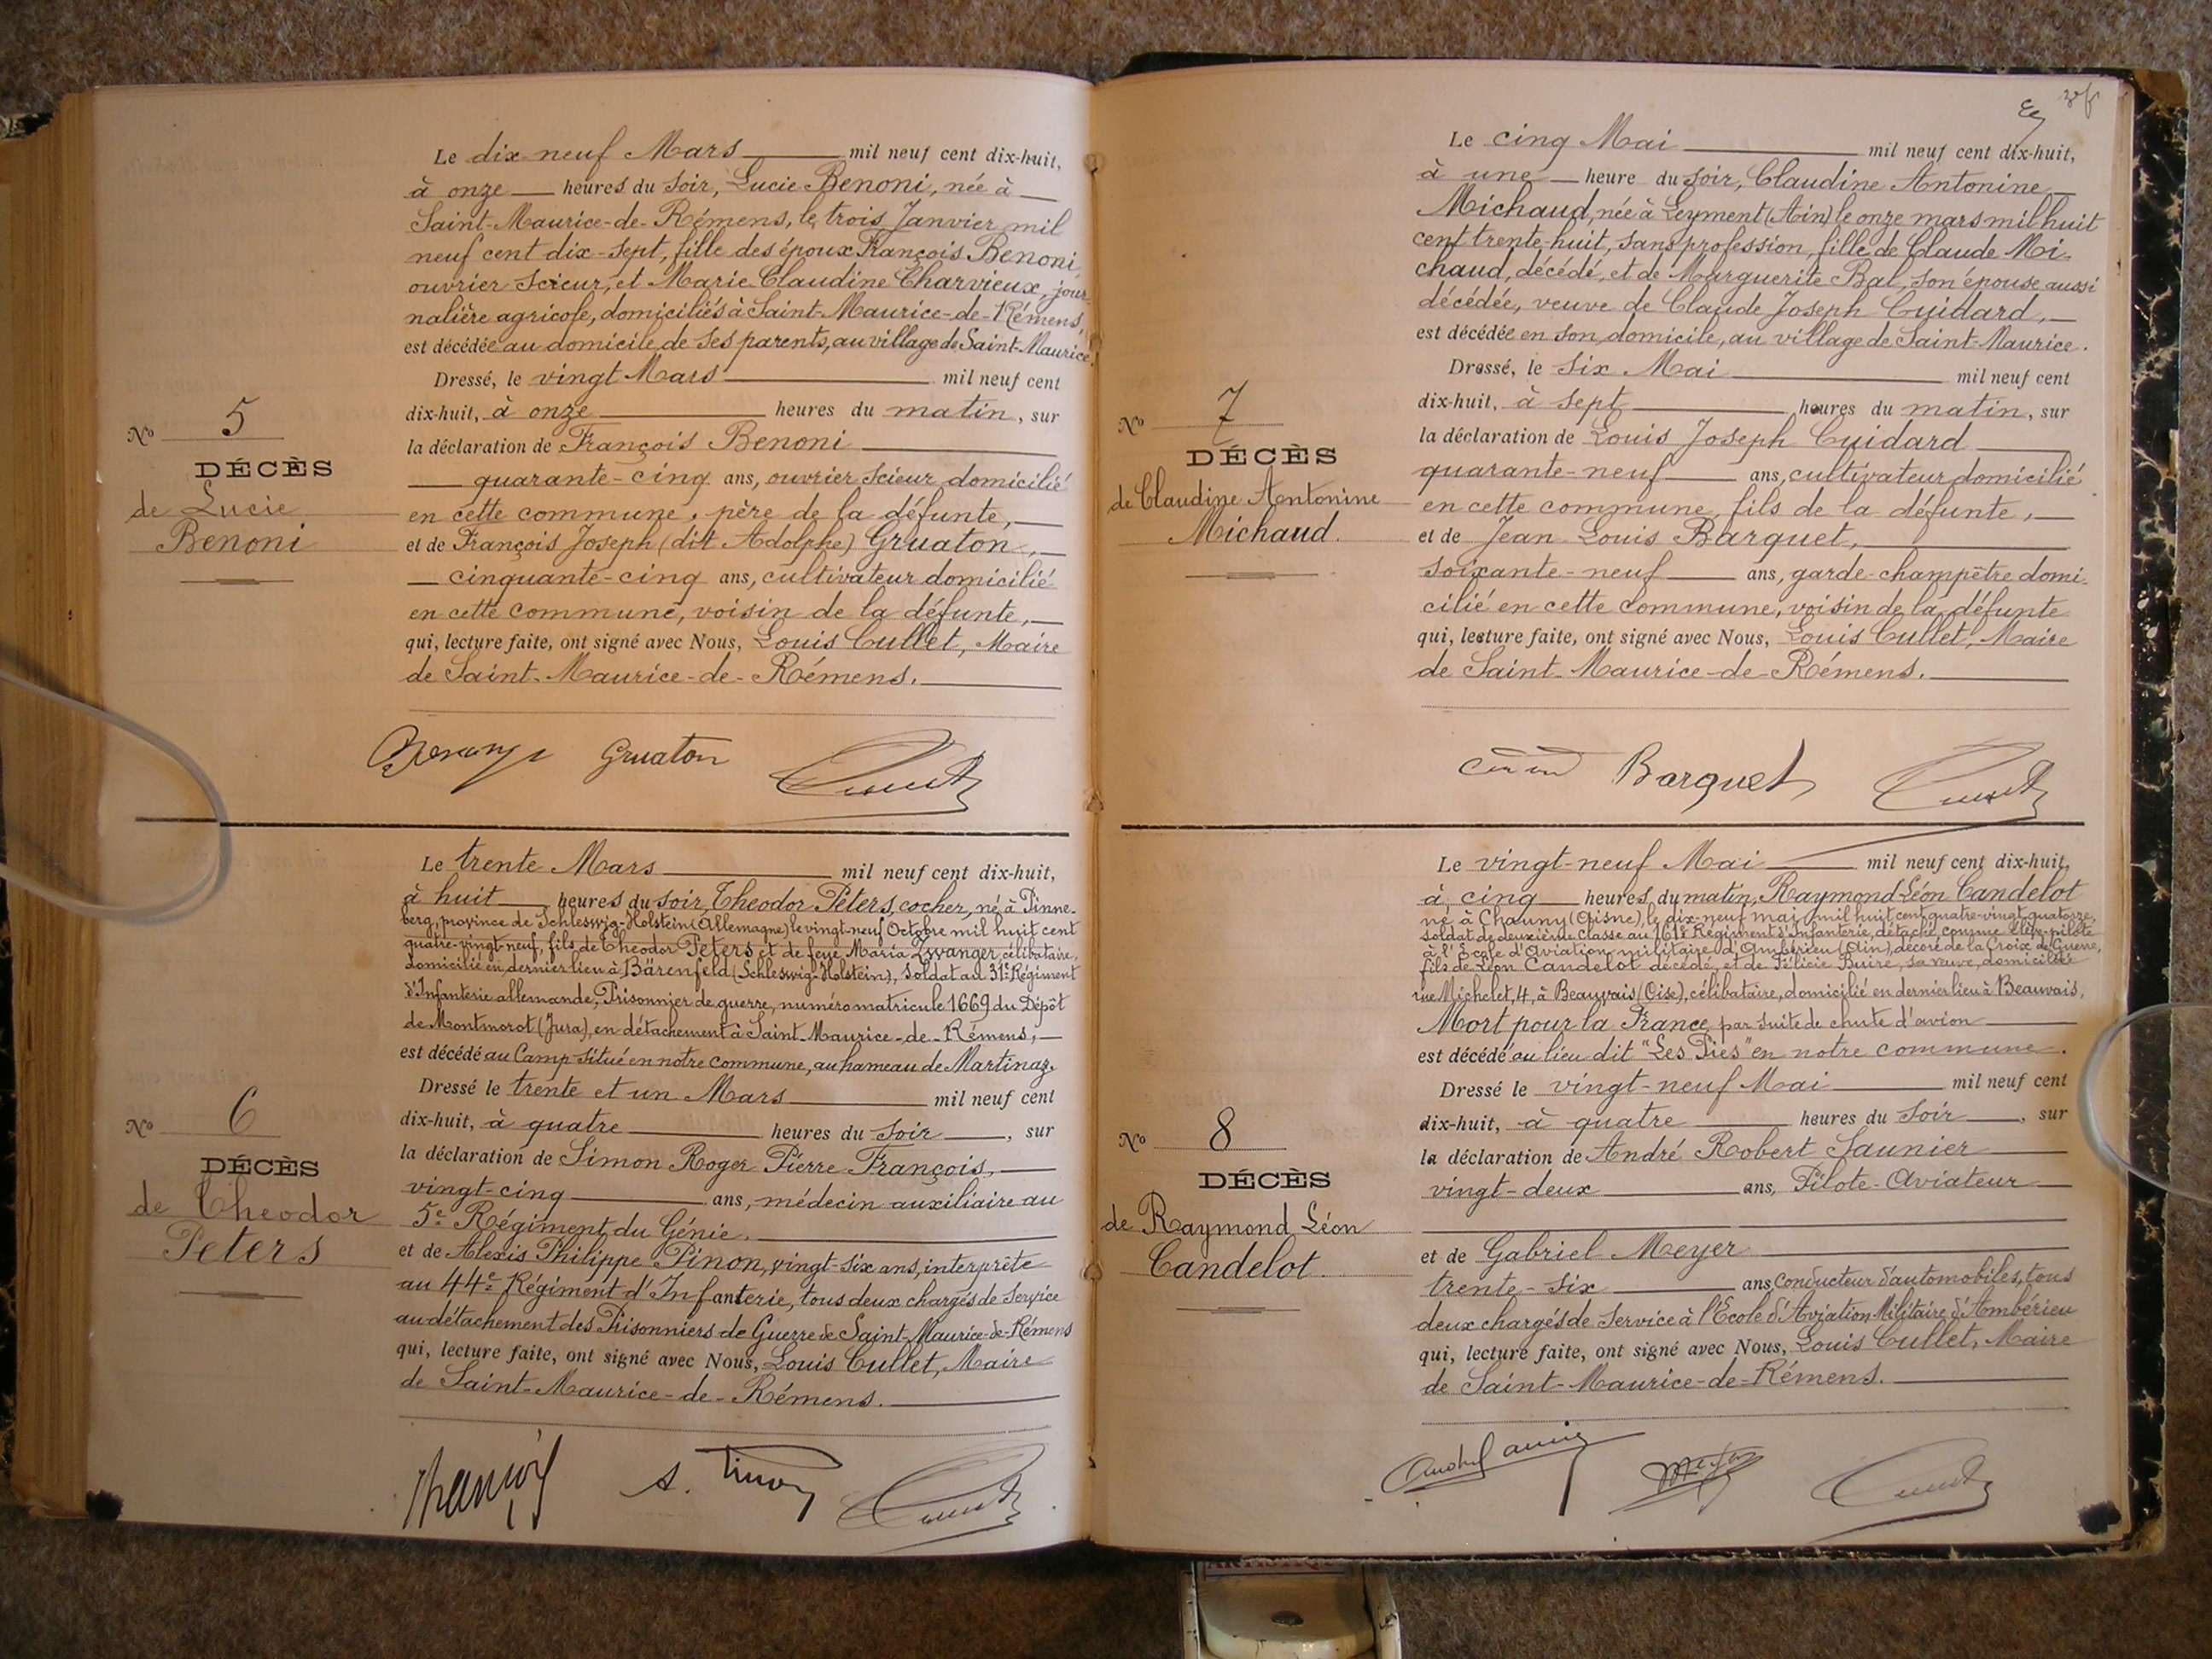 Le dix neuf Mars mil neuf cent dix-huit,
à onze heures du soir, Lucie Benoni, née à
Saint-Maurice-de-Rémens, le trois Janvier mil
neuf cent dix-sept, fille des époux François Benoni,
ouvrier scieur, et Marie Claudine Charvieux, jour-
nalière agricole, domiciliés à Saint-Maurice-de-Rémens,
est décédée au domicile de ses parents, au village de Saint-Maurice.
Dressé, le vingt Mars mil neuf cent
dix-huit, à onze heures du matin, sur
la déclaration de François Benoni
quarante-cinq ans, ouvrier scieur domicilié
en cette commune, père de la défunte,
et de François Joseph (dit Adolphe) Gruaton,
cinquante-cinq ans, cultivateur domicilié
en cette commune, voisin de la défunte,
qui, lecture faite, ont signé avec Nous, Louis Cullet, Maire
de Saint-Maurice-de-Rémens.
No 5
DÉCÈS
de Lucie
Benoni
Gruaton
Le trente Mars mil neuf cent dix-huit,
à huit heures du soir, Theodor Peters, cocher, né à Pinne-
berg, province de Schleswig-Holstein (Allemagne) le vingt-neuf Octobre mil huit cent
quatre-vingt-neuf, fils de Theodor Peters et de feue Maria Zwanger, célibataire,
domicilié en dernier lieu à Bärenfeld (Schleswig-Holstein), Soldat au 31e Régiment
d'Infanterie allemande, Prisonnier de guerre, numéro matricule 1669 du Dépôt
de Montmorot (Jura), en détachement à Saint-Maurice-de-Rémens,
est décédé au Camp situé en notre commune, au hameau de Martinaz.
Dressé le trente et un Mars mil neuf cent
dix-huit, à quatre heures du soir, sur
la déclaration de Simon Roger Pierre François,
vingt-cinq ans, médecin auxiliaire au
5e Régiment du Génie.
et de Alexis Philippe Pinon, vingt-six ans, interprète
au 44e Régiment d'Infanterie, tous deux chargés de service
au détachement des Prisonniers de Guerre de Saint-Maurice-de-Rémens
qui, lecture faite, ont signé avec Nous, Louis Cullet, Maire
de Saint-Maurice-de-Rémens.
No 6
DÉCÈS
de Theodor
Peters
A. Pinon
Le cinq Mai mil neuf cent dix-huit,
à une heure du soir, Claudine Antonine
Michaud, née à Leyment (Ain) le onze mars mil huit
cent trente-huit, sans profession, fille de Claude Mi-
chaud, décédé, et de Marguerite Bal, son épouse aussi
décédée, veuve de Claude Joseph Guidard,
est décédée en son domicile, au village de Saint-Maurice.
Dressé, le six Mai mil neuf cent
dix-huit, à sept heures du matin, sur
la déclaration de Louis Joseph Guidard
quarante-neuf ans, cultivateur domicilié
en cette commune, fils de la défunte,
et de Jean Louis Barquet,
soixante-neuf ans, garde-champêtre domi-
cilié en cette commune, voisin de la défunte
qui, lecture faite, ont signé avec Nous, Louis Cullet, Maire
de Saint-Maurice-de-Rémens.
No 7
DÉCÈS
de Claudine Antonine
Michaud.
Barquet
Le vingt-neuf Mai mil neuf cent dix-huit,
à cinq heures du matin, Raymond Léon Candelot
né à Chauny (Aisne), le dix-neuf mai mil huit cent quatre-vingt quatorze,
soldat de deuxième classe au 161e Régiment d'Infanterie, détaché comme élève-pilote
à l'École d'Aviation militaire d'Ambérieu (Ain), décoré de la Croix de Guerre,
fils de Léon Candelot décédé, et de Félicie Buire, sa veuve, domiciliée
rue Michelet, 4, à Beauvais (Oise), célibataire, domicilié en dernier lieu à Beauvais,
Mort pour la France par suite de chute d'avion
est décédé au lieu dit "Les Pies" en notre commune.
Dressé le vingt-neuf Mai mil neuf cent
dix-huit, à quatre heures du soir, sur
la déclaration de André Robert Saunier
vingt-deux ans, Pilote-Aviateur
et de Gabriel Meyer
trente-six ans, Conducteur d'automobiles, tous
deux chargés de service à l'École d'Aviation Militaire d'Ambérieu
qui, lecture faite, ont signé avec Nous, Louis Cullet, Maire
de Saint-Maurice-de-Rémens.
No 8
DÉCÈS
de Raymond Léon
Candelot.